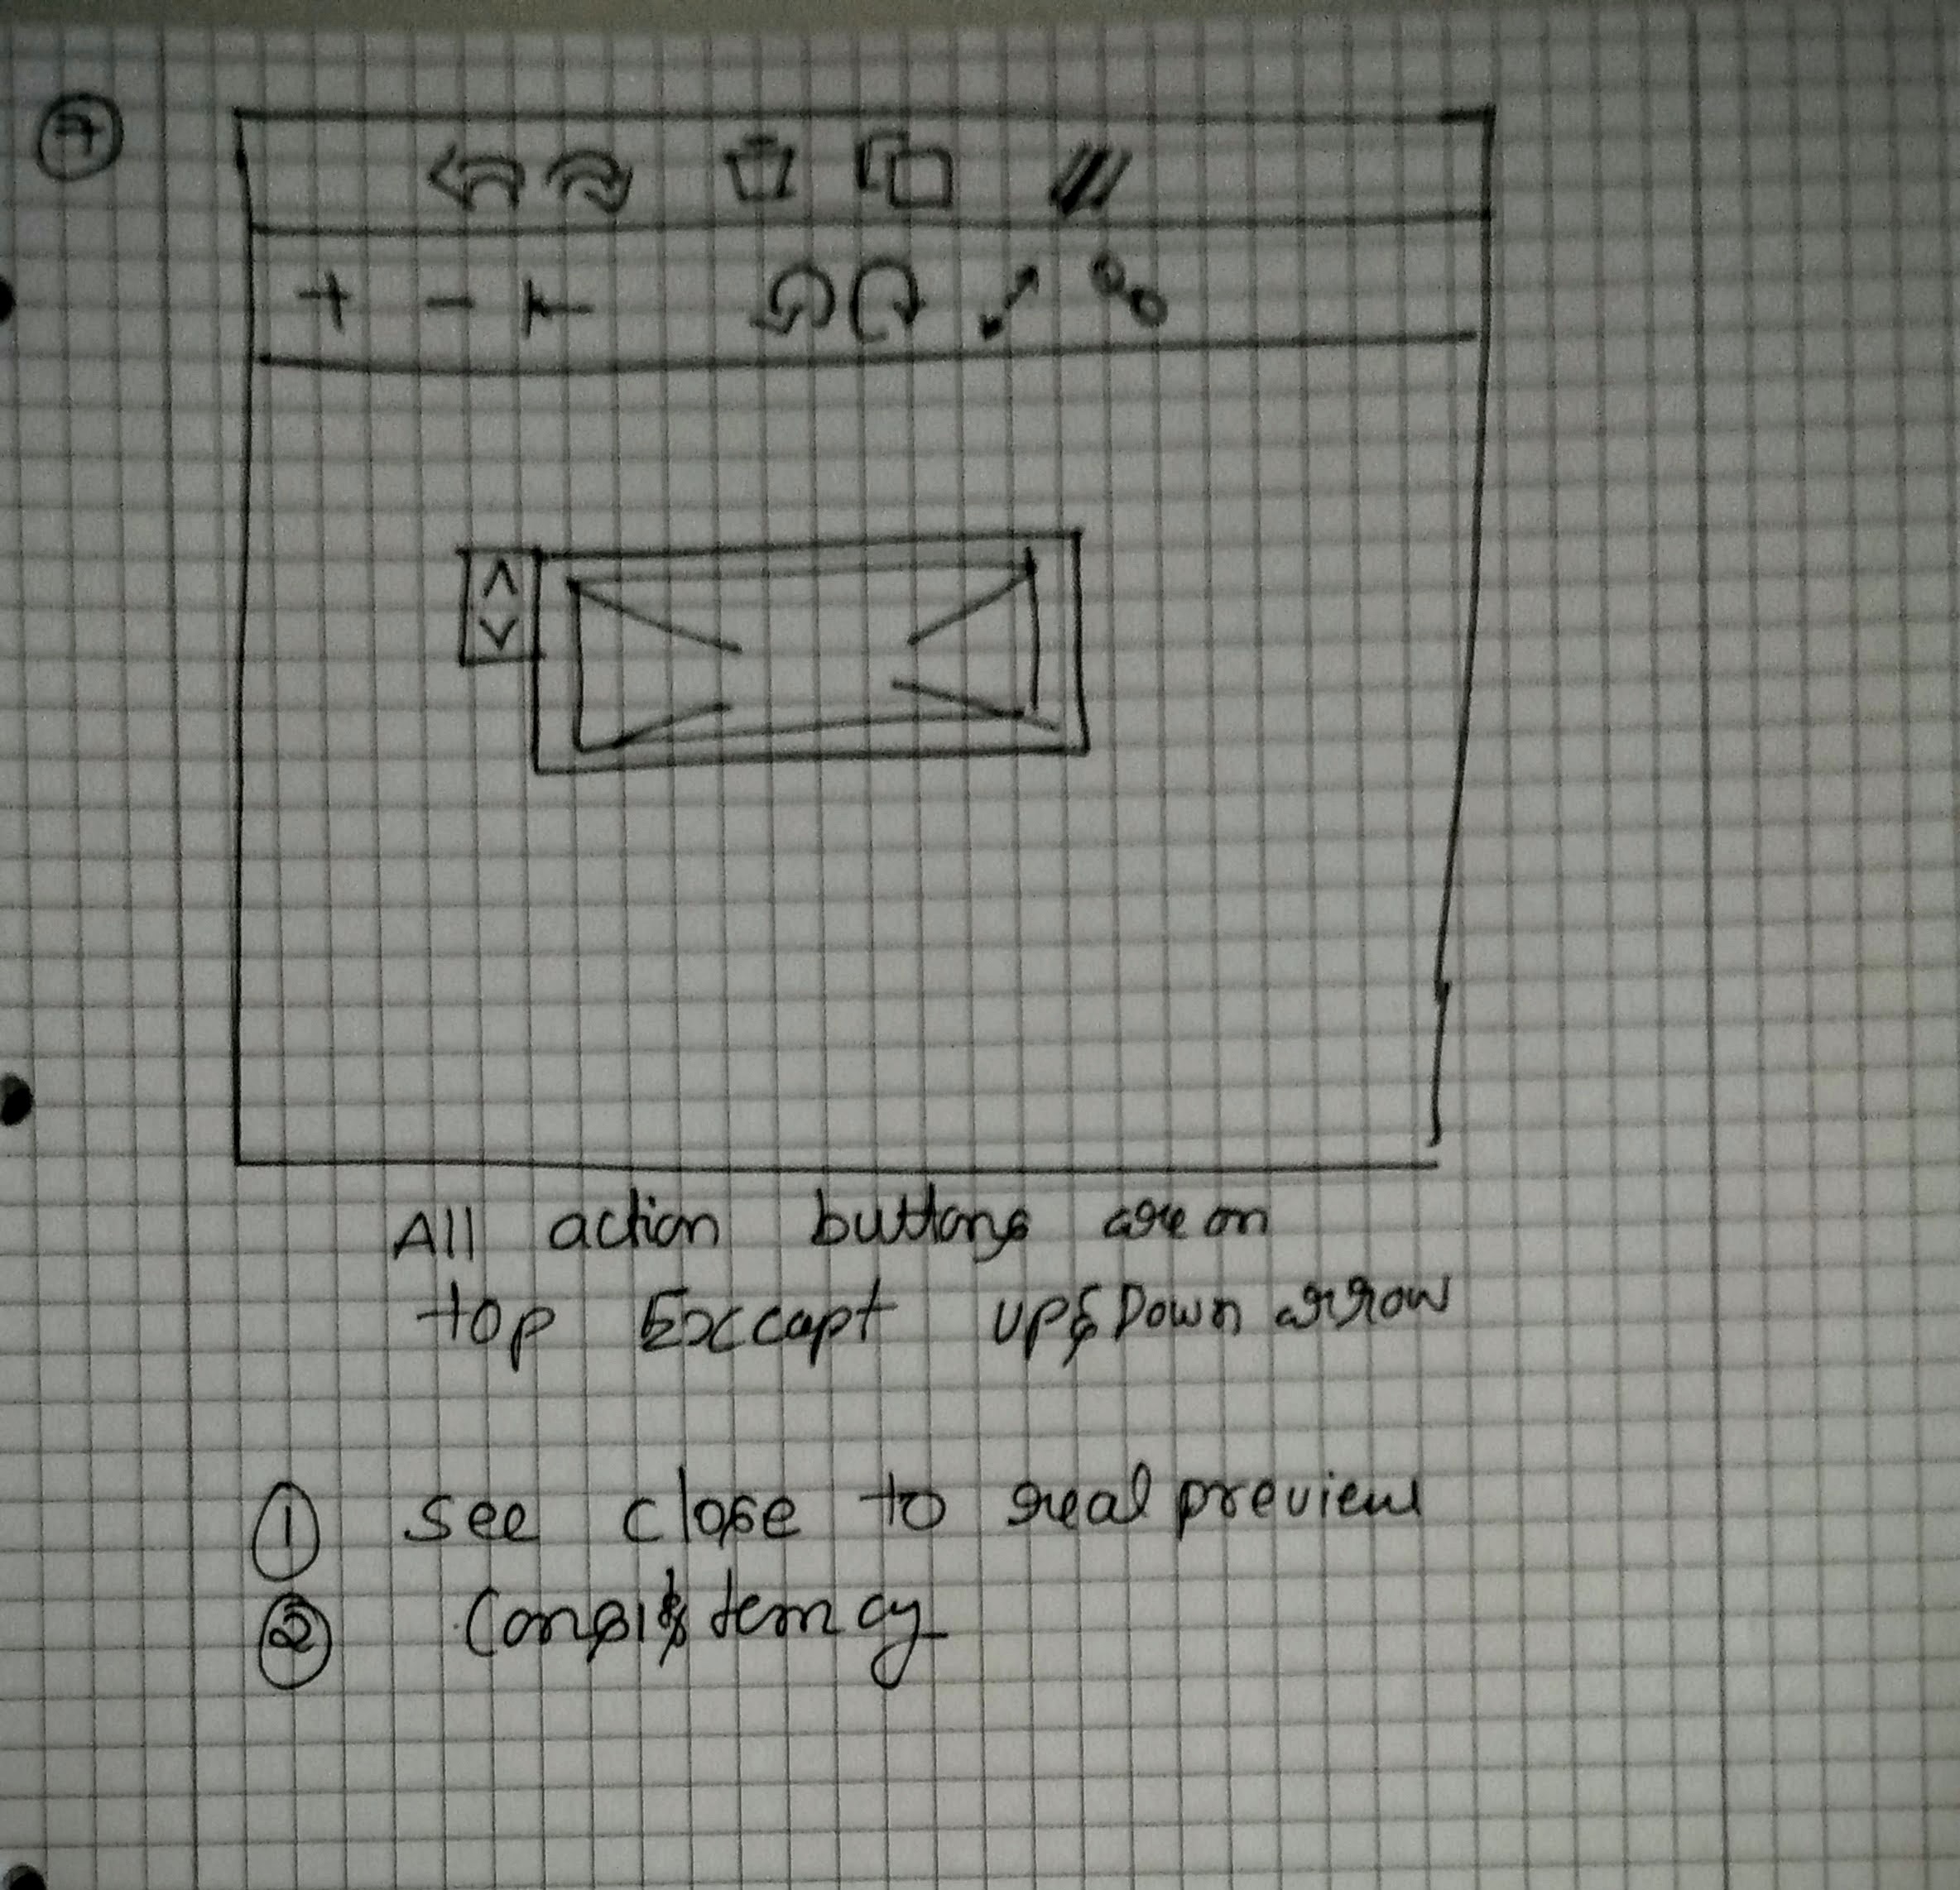 7
All action buttons are on
top Exccapt up & Down arrow
1 see close to real preview
2 Consistency